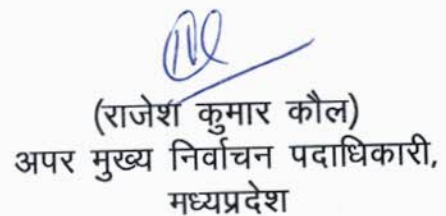 (राजेश कुमार कौल)
अपर मुख्य निर्वाचन पदाधिकारी,
मध्यप्रदेश